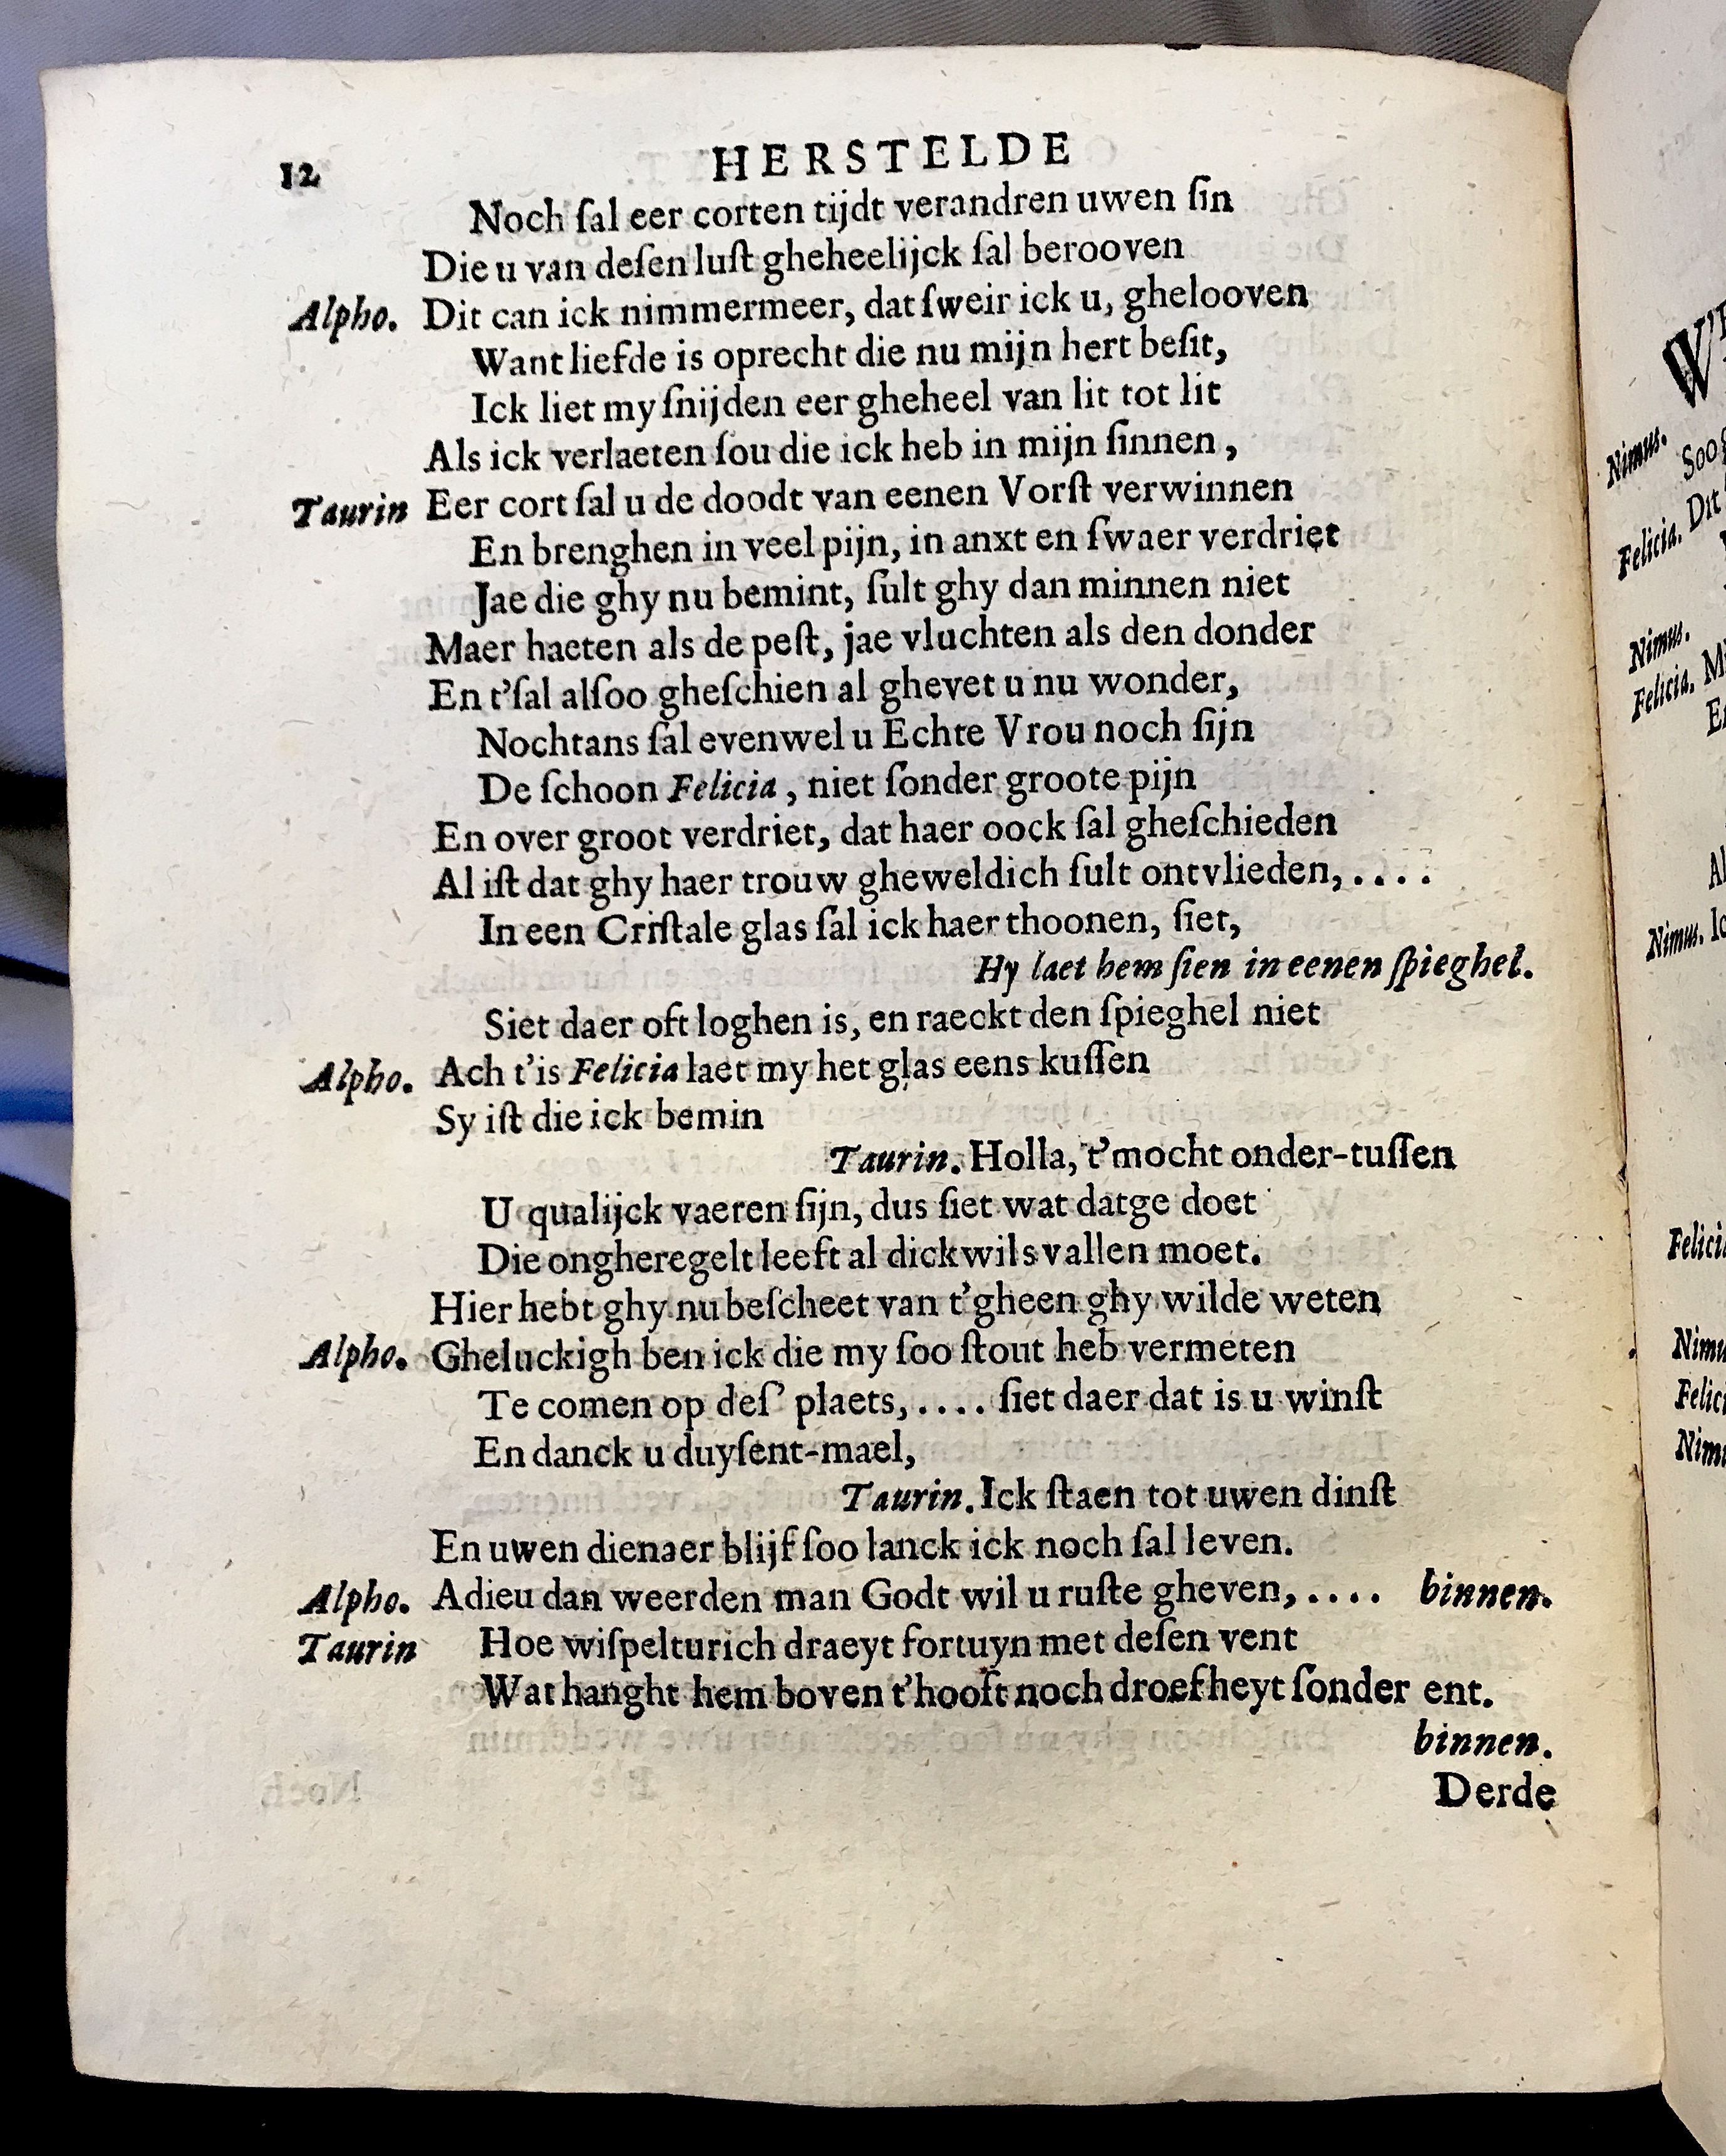 12 HERSTELDE
Noch ſal eer corten tijdt verandren uwen ſin
Die u van deſen luſt gheheelijck ſal berooven
Alpho. Dit can ick nimmermeer, dat ſweir ick u, ghelooven
Want liefde is oprecht die nu mijn hert beſit,
Ick liet my ſnijden eer gheheel van lit tot lit
Als ick verlaeten ſou die ick heb in mijn ſinnen,
Taurin Eer cort ſal u de doodt van eenen Vorſt verwinnen
En brenghen in veel pijn, in anxt en ſwaer verdriet
Jae die ghy nu bemint, ſult ghy dan minnen niet
Maer haeten als de peſt, jae vluchten als den donder
En t'ſal alſoo gheſchien al ghevet u nu wonder,
Nochtans ſal evenwel u Echte Vrou noch ſijn
De ſchoon Felicia, niet ſonder groote pijn
En over groot verdriet, dat haer oock ſal gheſchieden
Al iſt dat ghy haer trouw gheweldich ſult ontvlieden,....
In een Criſtale glas ſal ick haer thoonen, ſiet,
Hy laet hem ſien in eenen ſpieghel.
Siet daer oft loghen is, en raeckt den ſpieghel niet
Alpho. Ach t'is Felicia laet my het glas eens kuſſen
Sy iſt die ick bemin
Taurin. Holla, t'mocht onder-tuſſen
U qualijck vaeren ſijn, dus ſiet wat datge doet
Die ongheregelt leeft al dickwils vallen moet.
Hier hebt ghy nu beſcheet van t'gheen ghy wilde weten
Alpho. Gheluckigh ben ick die my ſoo ſtout heb vermeten
Te comen op deſ' plaets,.... ſiet daer dat is u winſt
En danck u duyſent-mael,
Taurin. Ick ſtaen tot uwen dinſt
En uwen dienaer blijf ſoo lanck ick noch ſal leven.
Alpho. Adieu dan weerden man Godt wil u ruſte gheven,.... binnen.
Taurin Hoe wiſpelturich draeyt fortuyn met deſen vent
Wat hanght hem boven t'hooft noch droefheyt ſonder ent.
binnen.
Derde
Nimus.
Felicia. Dit
Nimus.
Felicia.
Nimus.